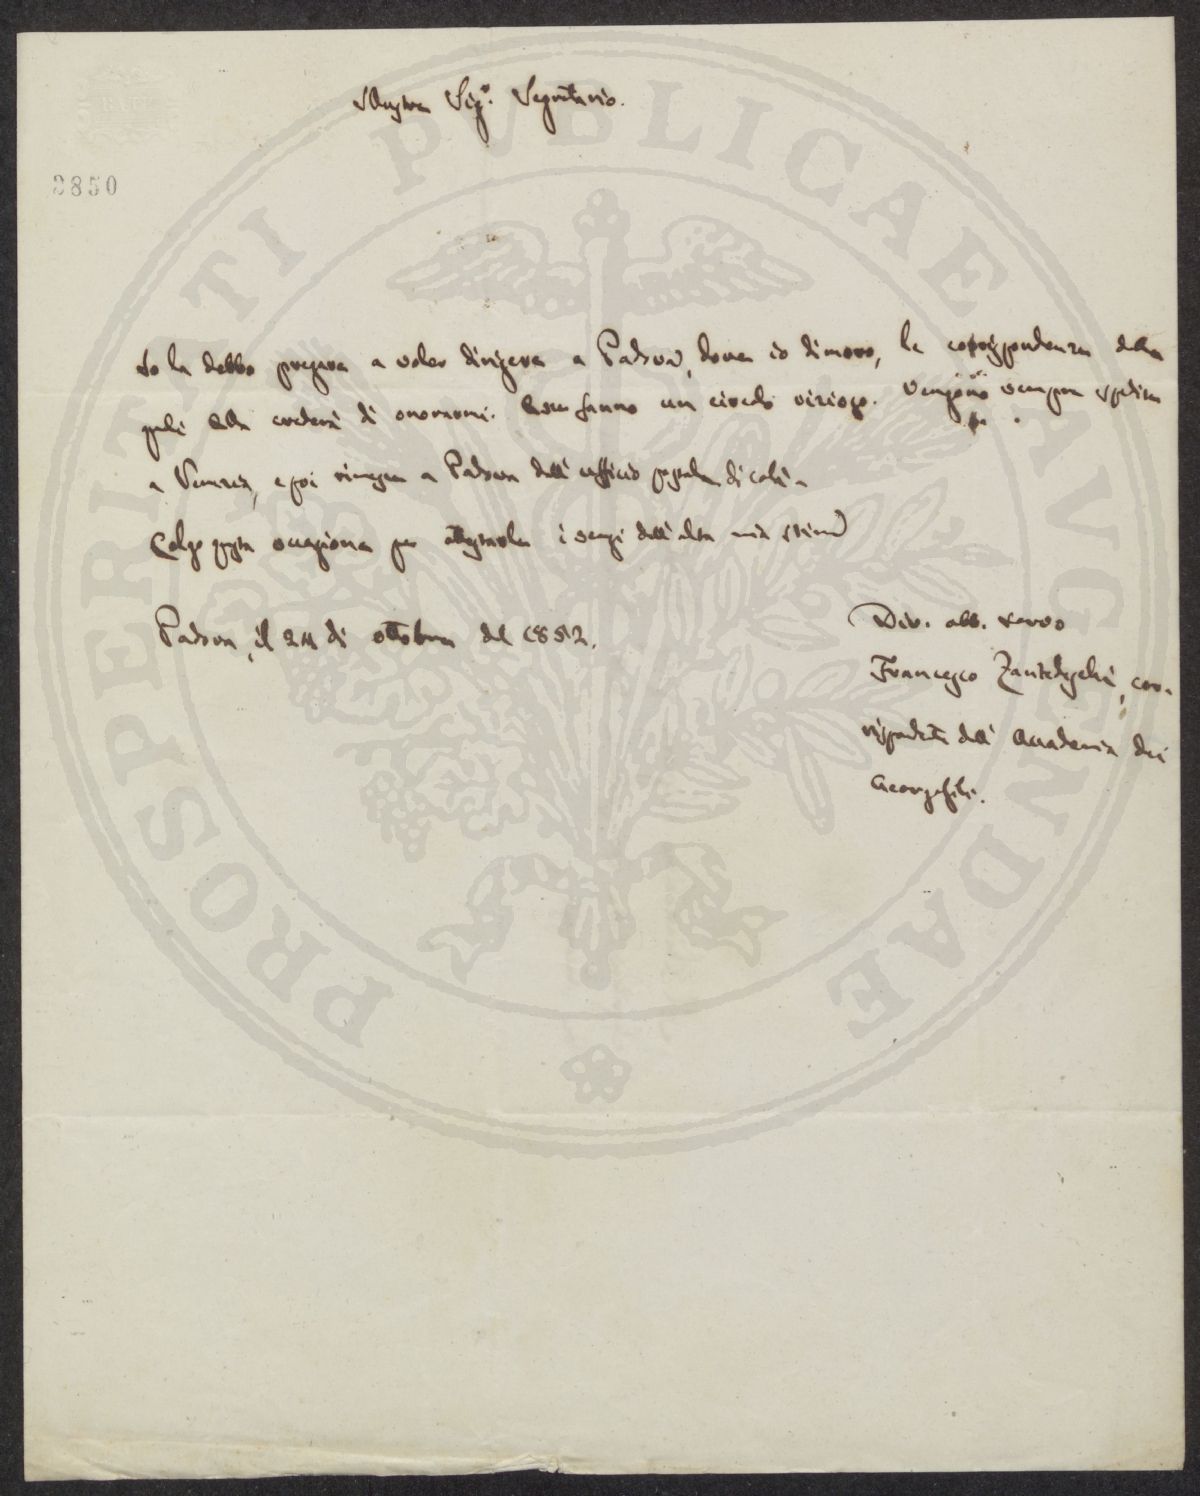 Illustre Sig.e Segretario.
2850
Io La debbo pregare a voler dirigere a Padova, dove io dimoro, le corrispondenze delle
quali Ella crederà di onorarmi. Esse fanno un circolo vizioso. Vengono sempre spedite
a Venezia, e poi rimesse a Padova dall'ufficio postale di colà.
Colgo questa occasione per attestarle i sensi dell'alta mia stima
Padova, il 24 di ottobre del 1852.
Dev. obb. servo
Francesco Zantedeschi, cor-
rispondente dell'Accademia dei
Georgofili.
PROSPERITATI PUBLICAE AUGENDAE